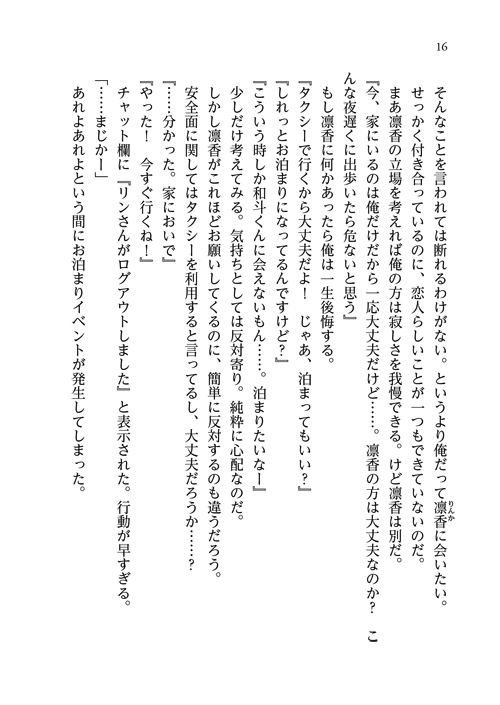 16
そんなことを言われては断れるわけがない。というより俺だって凛香に会いたい。
りんか
せっかく付き合っているのに、恋人らしいことが一つもできていないのだ。
まあ凛香の立場を考えれば俺の方は寂しさを我慢できる。けど凛香は別だ。
『今、家にいるのは俺だけだから一応大丈夫だけど……。凛香の方は大丈夫なのか？　こ
んな夜遅くに出歩いたら危ないと思う』
もし凛香に何かあったら俺は一生後悔する。
『タクシーで行くから大丈夫だよ！　じゃあ、泊まってもいい？』
『しれっとお泊まりになってるんですけど？』
『こういう時しか和斗くんに会えないもん……。泊まりたいなー』
少しだけ考えてみる。気持ちとしては反対寄り。純粋に心配なのだ。
しかし凛香がこれほどお願いしてくるのに、簡単に反対するのも違うだろう。
安全面に関してはタクシーを利用すると言ってるし、大丈夫だろうか……？
『……分かった。家においで』
『やった！　今すぐ行くね！』
チャット欄に『リンさんがログアウトしました』と表示された。行動が早すぎる。
「……まじかー」
あれよあれよという間にお泊まりイベントが発生してしまった。